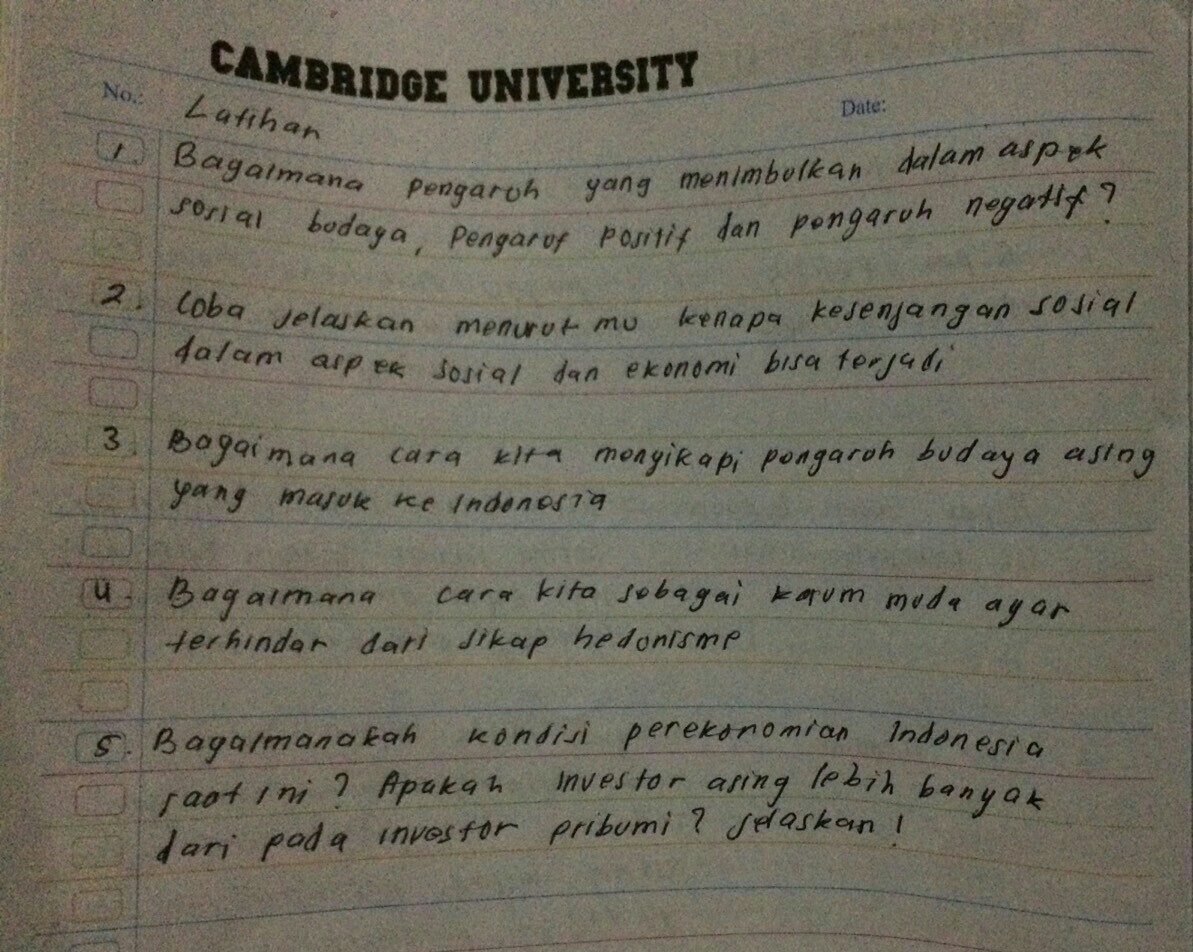 CAMBRIDGE UNIVERSITY
No.: Latihan Date:
1. Bagaimana pengaruh yang menimbulkan dalam aspek
sosial budaya, Pengaruf Positif dan pengaruh negatif?
2. Coba jelaskan menurut mu kenapa kesenjangan sosial
dalam aspek sosial dan ekonomi bisa terjadi
3. Bagaimana cara kita menyikapi pengaruh budaya asing
yang masuk ke Indonesia
4. Bagaimana cara kita sebagai kaum muda agar
terhindar dari sikap hedonisme
5. Bagaimanakah kondisi perekonomian Indonesia
saat ini? Apakah investor asing lebih banyak
dari pada investor pribumi? jelaskan!